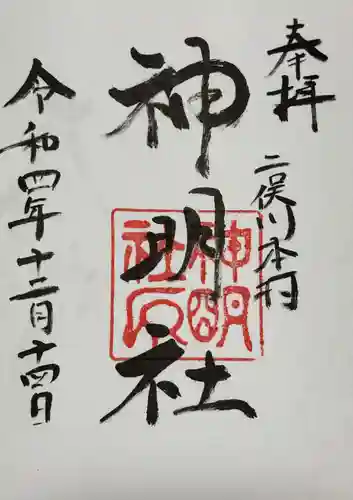 奉拝
二俣川本村
神明社
神明社印
令和四年十二月十四日